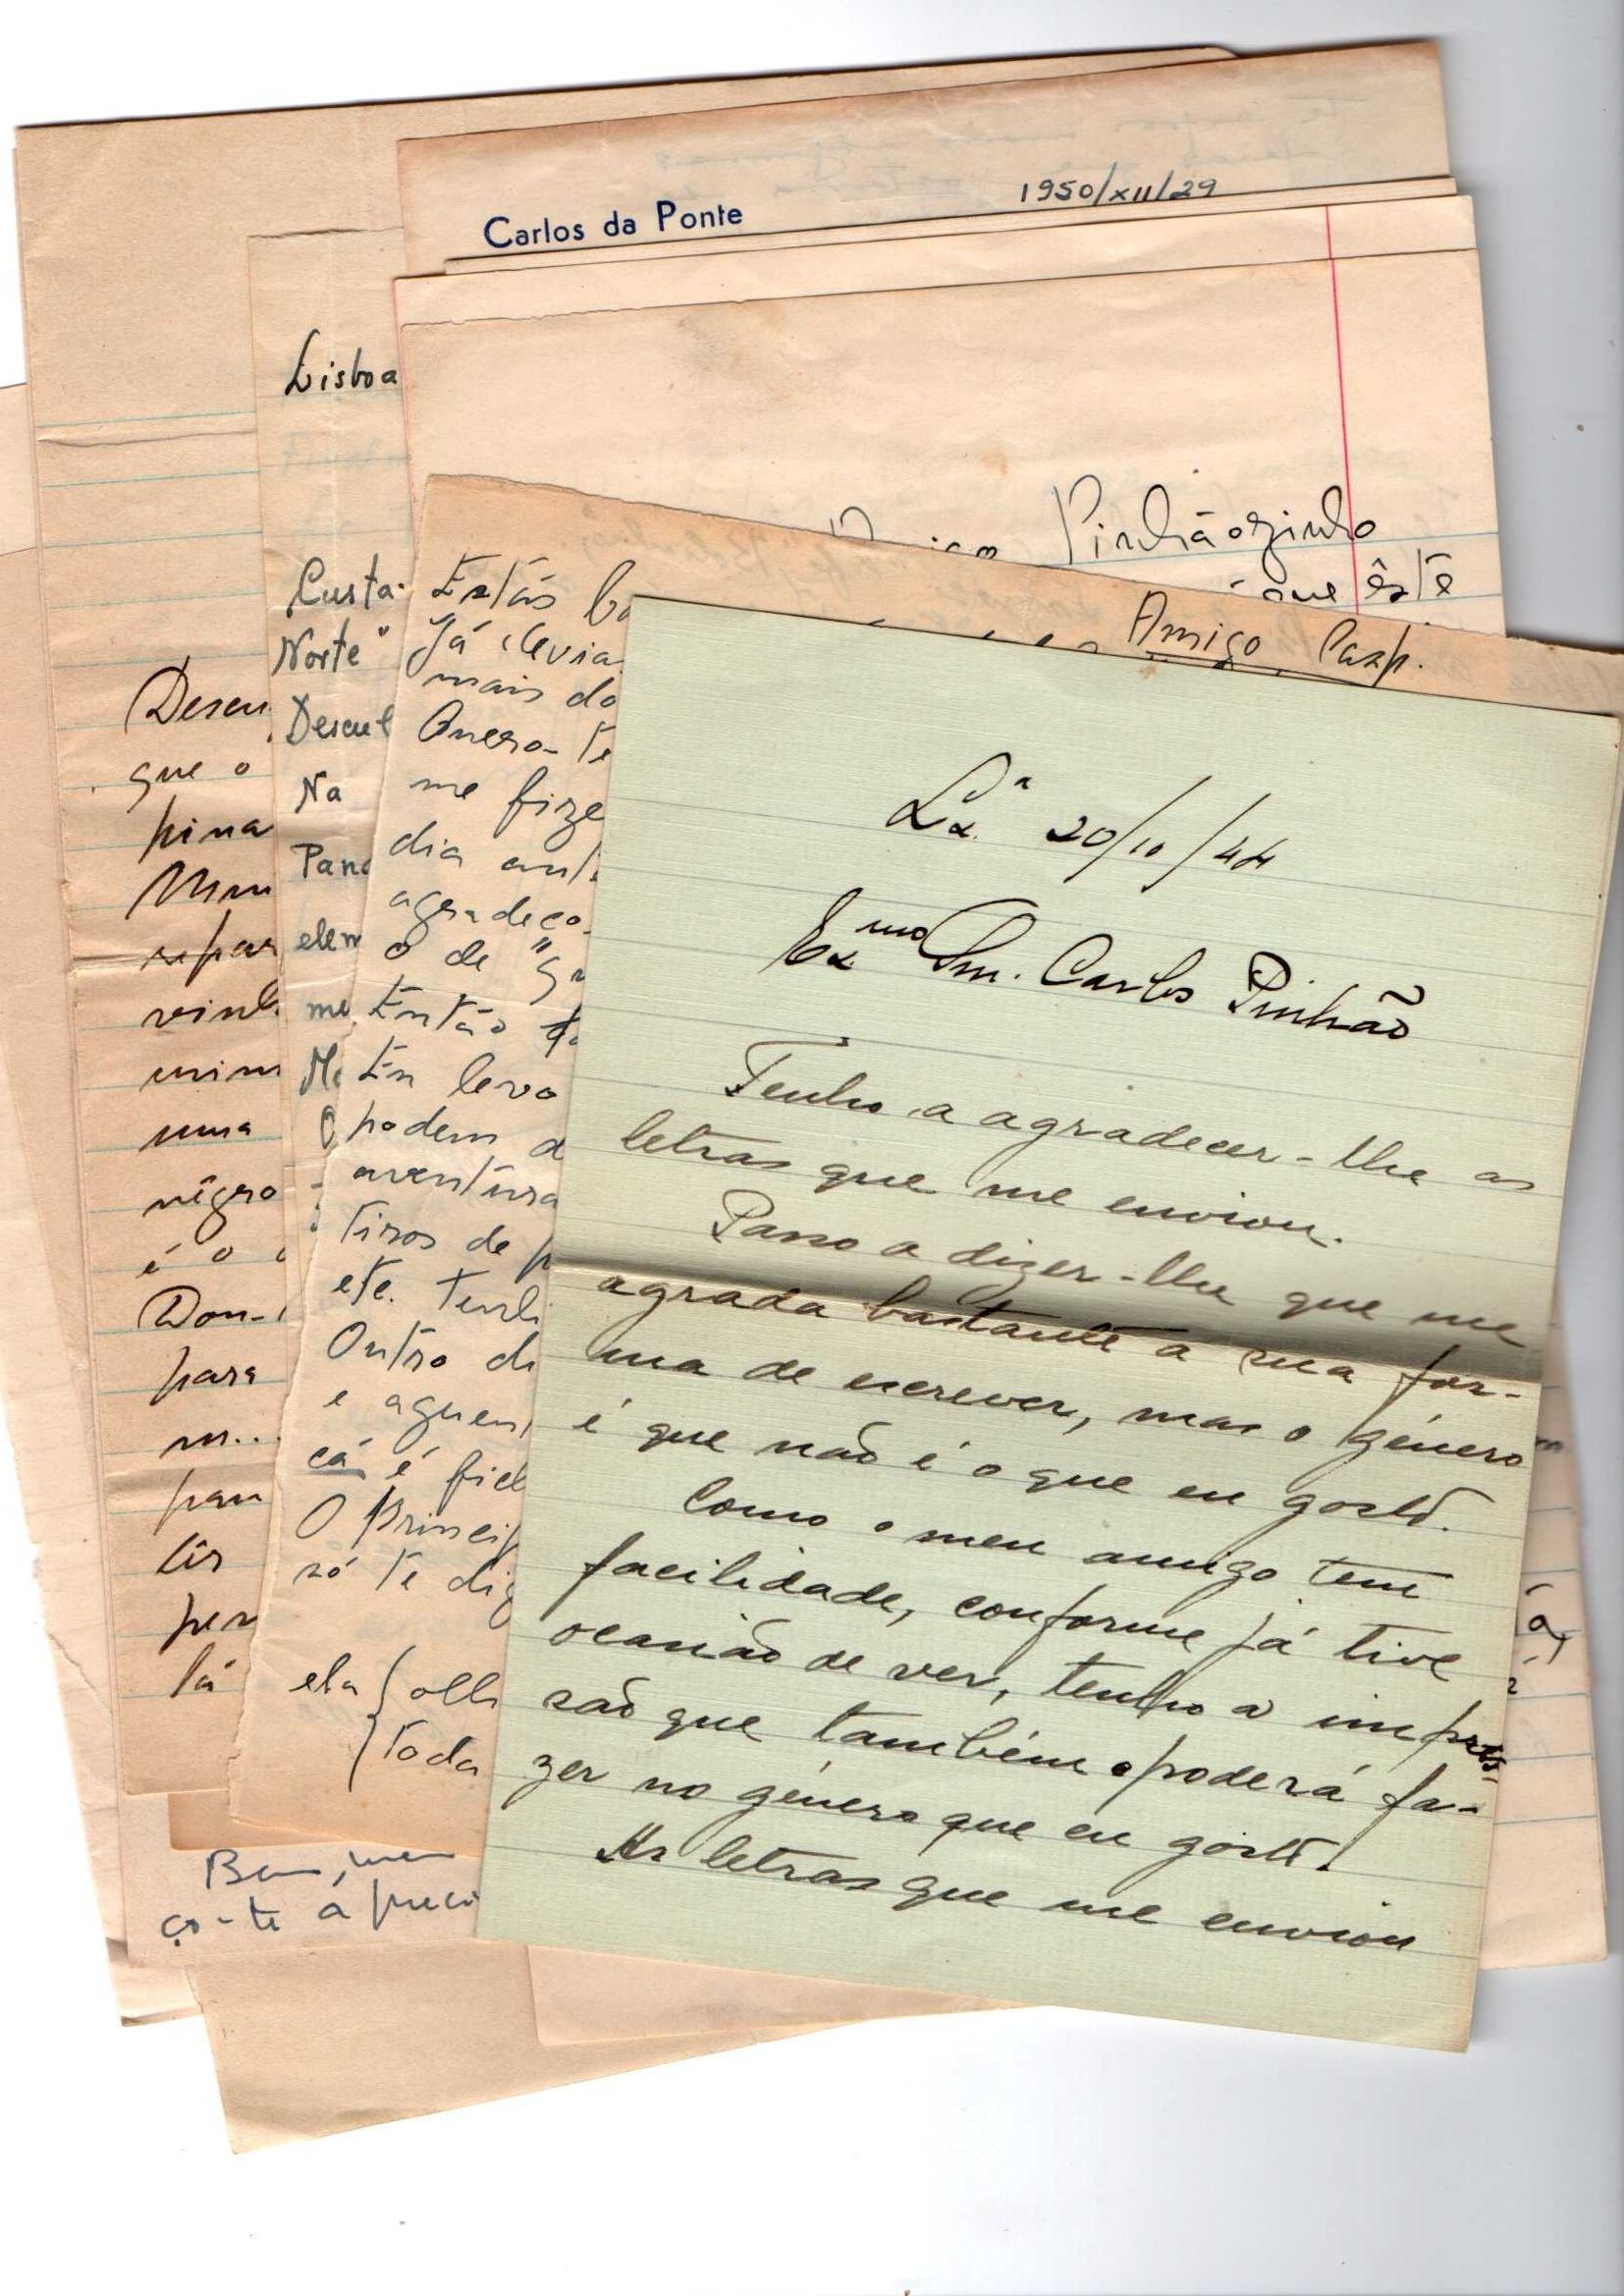 Carlos da Ponte
1950/XII/29
Lisboa
Pinhãozinho
que êste
Amigo Casp.
Custa-
Norte"
Descul
Na
Pano
elem
me
Estás bo
Já devia
mais do
Quero-te
me fize
dia ant
agradeço-
o de "Gr
Então
Eu levo
podem d
aventura
tiros de p
etc. Tenh
Outro di
e aguen
cá é fiel
O Princip
só te dig
ela olh
toda
Descu
que o
pina
repar
vinh
mim
uma
nêgro
é o
Dom-
para
m...
pan
tir
per
lá
Bem, meu
ço-te a preci
Lx.ª 20/10/44
Ex.mo Snr. Carlos Pinhão
Tenho a agradecer-lhe as
letras que me enviou.
Passo a dizer-lhe que me
agrada bastante a sua for-
ma de escrever, mas o género
é que não é o que eu gosto.
Como o meu amigo tem
facilidade, conforme já tive
ocasião de ver, tenho a impres-
são que também o poderá fa-
zer no género que eu gosto.
As letras que me enviou